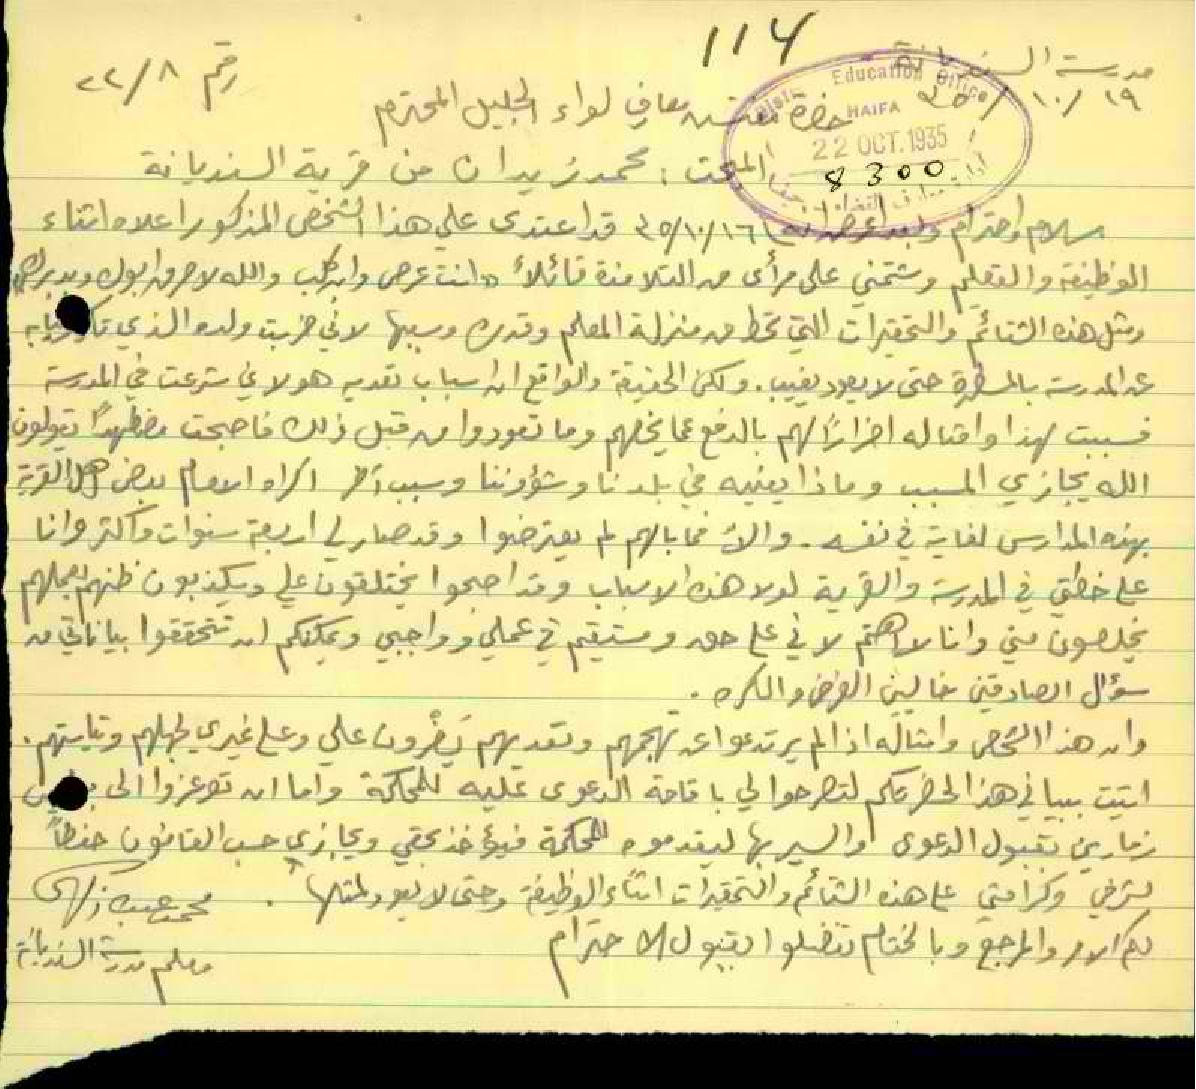 114
مدرسة السنديانة
رقم ٢٢/٨
١٩/١٠/٣٥
Education Office
HAIFA
22 OCT. 1935
8300
حضرة مفتش معارف لواء الجليل المحترم
المبحث : محمد زيدان من قرية السنديانة
سلام واحترام وبعد اعرض انه ١٦/١٠/٣٥ قد اعتدى علي هذا الشخص المذكور اعلاه اثناء
الوظيفة والتعليم وشتمني على مرأى من التلامذة قائلاً انت عرص وابن كلب والله لاحرق ابوك
ومثل هذه الشتائم والتحقيرات التي تحط من منزلة المعلم وقدره وسببها لاني ضربت ولده الذي
عن المدرسة بالمسطرة حتى لا يعود يغيب . ولكن الحقيقة والواقع ان اسباب تعديه هو لاني شرعت في المدرسة
فسببت لهذا وامثاله اضراراً لهم بالدفع عما يخصهم وما تعودوا من قبل ذلك فاصبحت مضطهداً يقولون
الله يجازي المسبب وماذا يعنيه في بلدنا وشؤوننا وسبب آخر اكراه الامام بعض اهل القرية
بهذه المدارس لغاية في نفسه . والا فما بالهم لم يعترضوا وقد صار لي اربعة سنوات واكثر وانا
على خطتي في المدرسة والقرية لولا هذه الاسباب وقد اصبحوا يختلقون علي ويكذبون ظنهم بعملهم
يخلصون مني وانا لا اهتم لاني على حق ومستقيم في عملي وواجبي ويمكنكم ان تتحققوا بياناتي من
سؤال الصادقين خاليين الغرض والكره .
وان هذا الشخص وامثاله اذا لم يرتدعوا عن تهجمهم وتعديهم يَضْرون علي وعلى غيري لجهلهم
اتيت ببياني هذا لحضرتكم لتصرحوا لي باقامة الدعوى عليه للمحكمة واما ان توعزوا الى بوليس
زمارين بقبول الدعوى والسير بها ليقدموه للمحكمة فيؤخذ بحقي ويجازى حسب القانون حفظاً
لشرفي وكرامتي على هذه الشتائم والتحقيرات اثناء الوظيفة وحتى لا يعود لمثلها .
لكم الامر والمرجع وبالختام تفضلوا بقبول الاحترام
محمد
معلم مدرسة السنديانة